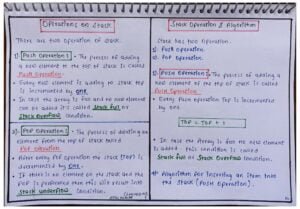 Operations on Stack
There are two operation of stack.
1) Push Operation :- The process of adding
a new element to the top of stack is called
Push Operation.
• Every new element is adding to stack top
is incremented by one.
• In case the array is full and no new element
can be added it is called Stack full or
Stack Overflow condition.
2) POP Operation :- The process of deleting an
element from the top of stack called
POP Operation.
• After every POP operation the stack (TOP) is
decremented by one.
• If there is no element on the stack and the
POP is performed then this will result into
Stack Underflow condition.
Stack Operation & Algorithm
Stack has two Operation.
Push Operation.
POP Operation.
Push Operation :- The process of adding a
new element of the top of stack is called
Push Operation.
• Every push operation Top is incremented
by one.
TOP = TOP + 1
• In case the Array is full no new element is
added. This condition is called
Stack full or Stack Overflow condition.
Algorithm for Inserting an Item into
the Stack (Push Operation) :-